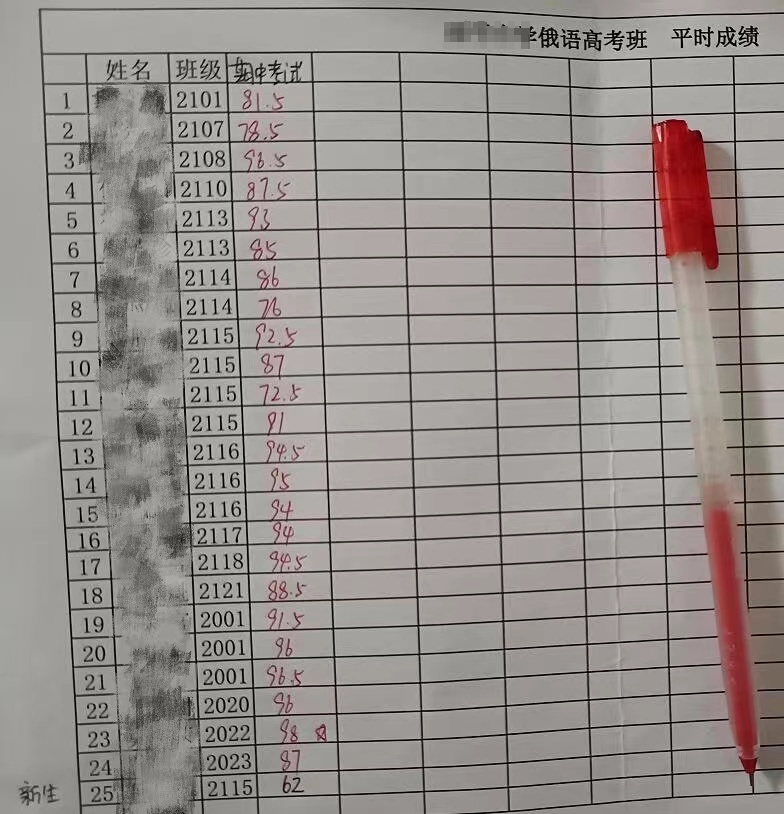 学俄语高考班 平时成绩
姓名 班级 期中考试
1 2101 81.5
2 2107 78.5
3 2108 96.5
4 2110 87.5
5 2113 93
6 2113 85
7 2114 86
8 2114 76
9 2115 92.5
10 2115 87
11 2115 72.5
12 2115 91
13 2116 94.5
14 2116 95
15 2116 94
16 2117 94
17 2118 94.5
18 2121 88.5
19 2001 91.5
20 2001 96
21 2001 96.5
22 2020 96
23 2022 98
24 2023 87
新生 25 2115 62